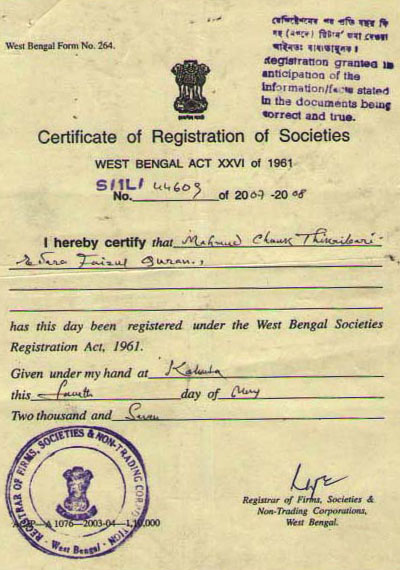 West Bengal Form No. 264.
রেজিস্ট্রেশনের পর প্রতি বছর ফি
সহ রিটার্ন জমা দেওয়া
আইনতঃ বাধ্যতামূলক।
Registration granted in
anticipation of the
information/facts stated
in the documents being
correct and true.
Certificate of Registration of Societies
WEST BENGAL ACT XXVI of 1961
S/1L/ 44609
No. of 2007 -2008
I hereby certify that Mahmud Chawk
Faizul Quran
has this day been registered under the West Bengal Societies
Registration Act, 1961.
Given under my hand at Kolkata
this fourth day of May
Two thousand and Seven
REGISTRAR OF FIRMS, SOCIETIES & NON-TRADING CORPORATION
West Bengal
1076—2003-04—1,10,000
Registrar of Firms, Societies &
Non-Trading Corporations,
West Bengal.